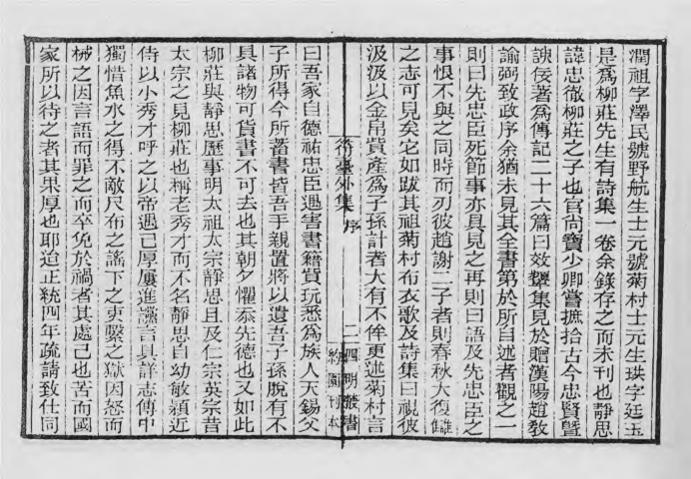 潤祖字澤民號野航生士元號菊村士元生珙字廷玉
是爲柳莊先生有詩集一卷余錄存之而未刊也靜思
諱忠徹柳莊之子也官尚寶少卿嘗摭拾古今忠賢曁
諛佞著爲傳記二十六篇曰效顰集見於贈漢陽趙敎
諭弼致政序余猶未見其全書第於所自述者觀之一
則曰先忠臣死節事亦具見之再則曰語及先忠臣之
事恨不與之同時而刃彼趙謝二子者則春秋大復讎
之志可見矣它如跋其祖菊村布衣歌及詩集曰視彼
汲汲以金帛貲產爲子孫計者大有不侔更述菊村言
符臺外集 序
二
四明叢書
約園刊本
曰吾家自德祐忠臣遇害書籍貨玩悉爲族人天錫父
子所得今所蓄書皆吾手親置將以遺吾子孫脫有不
具諸物可貨書不可去也其朝夕懼忝先德也又如此
柳莊與靜思歷事明太祖太宗靜思且及仁宗英宗昔
太宗之見柳莊也稱老秀才而不名靜思自幼敏穎近
侍以小秀才呼之以帝遇己厚屢進讜言具詳志傳中
獨惜魚水之得不敵尺布之謠下之吏繫之獄因怒而
械之因言語而罪之而卒免於禍者其處己也苦而國
家所以待之者其果厚也耶迨正統四年疏請致仕同